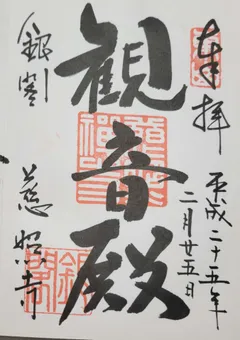 奉拝
平成二十五年
二月廿五日
観音殿
銀閣
慈照寺